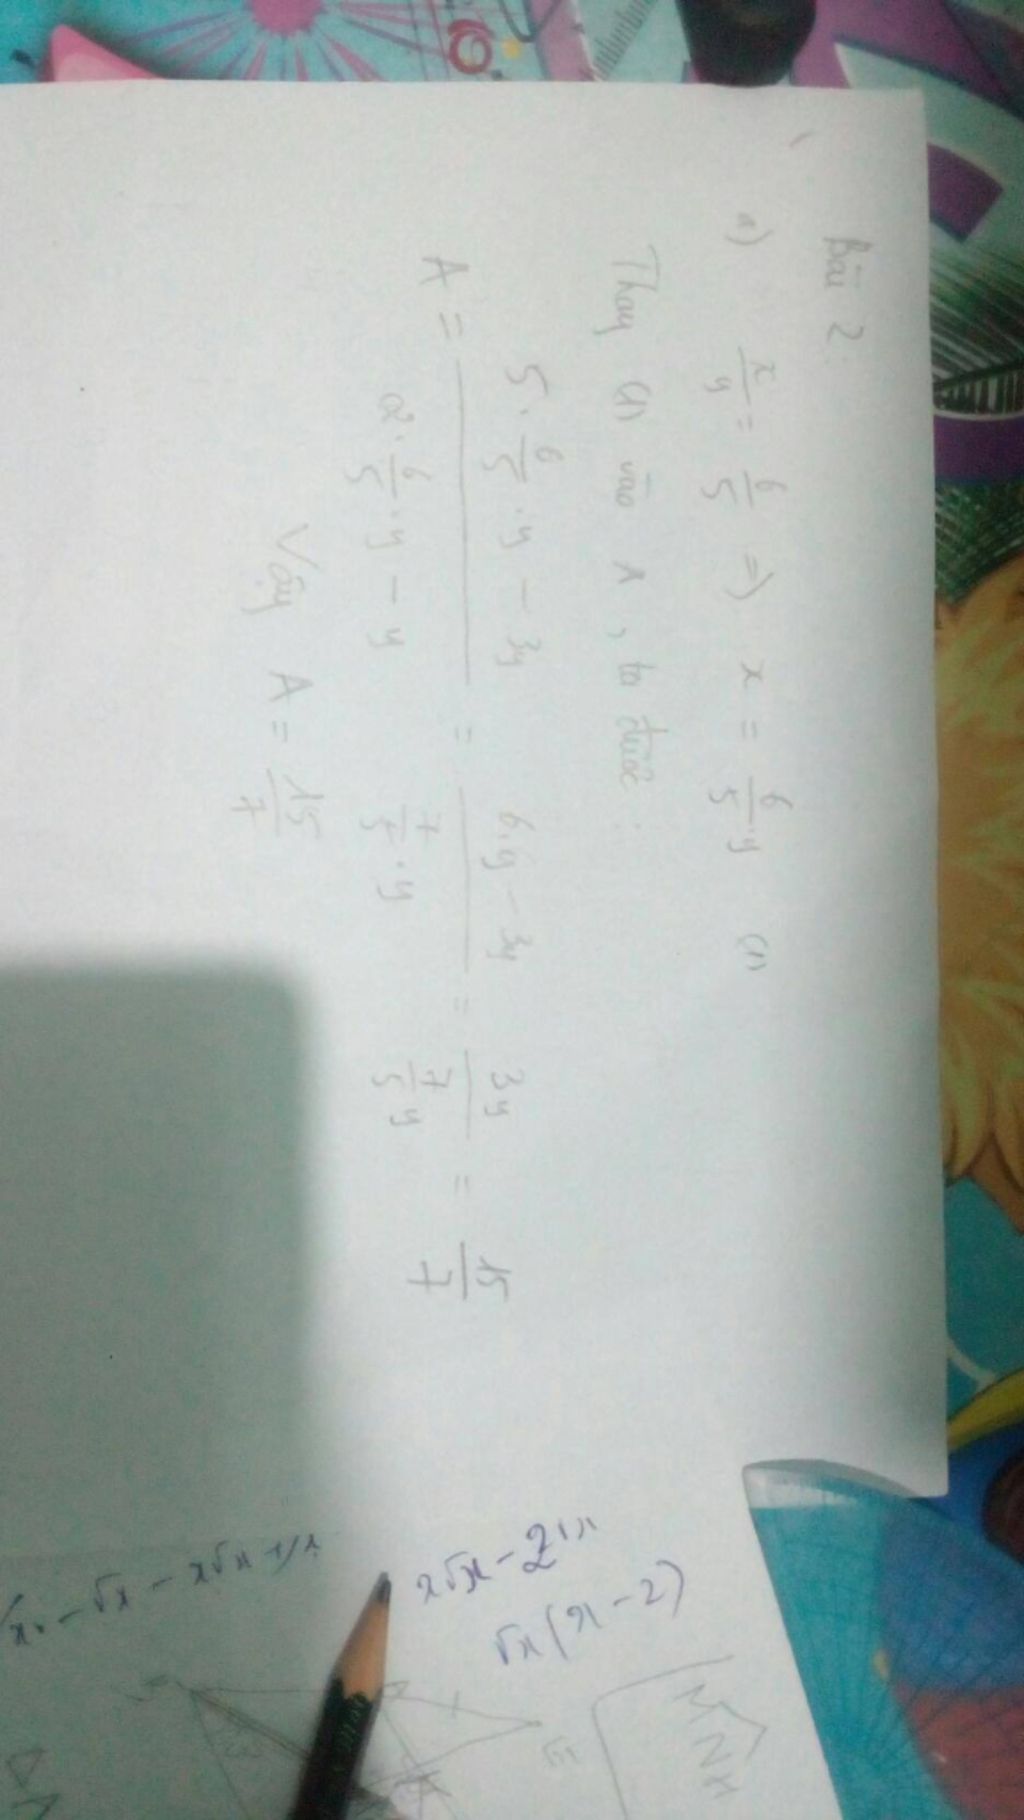 Bài 2:
a) x/y = 6/5 => x = 6/5 · y (1)
Thay (1) vào A, ta được:
A = (5 · 6/5 · y - 3y)/(2 · 6/5 · y - y) = (6.y - 3y)/(7/5 · y) = 3y/(7/5 y) = 15/7
Vậy A = 15/7
√x(x-2)
MNH
E